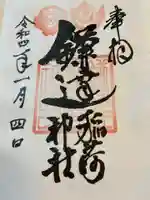 奉拝
鎌達稲荷
神社
令和四年一月四日